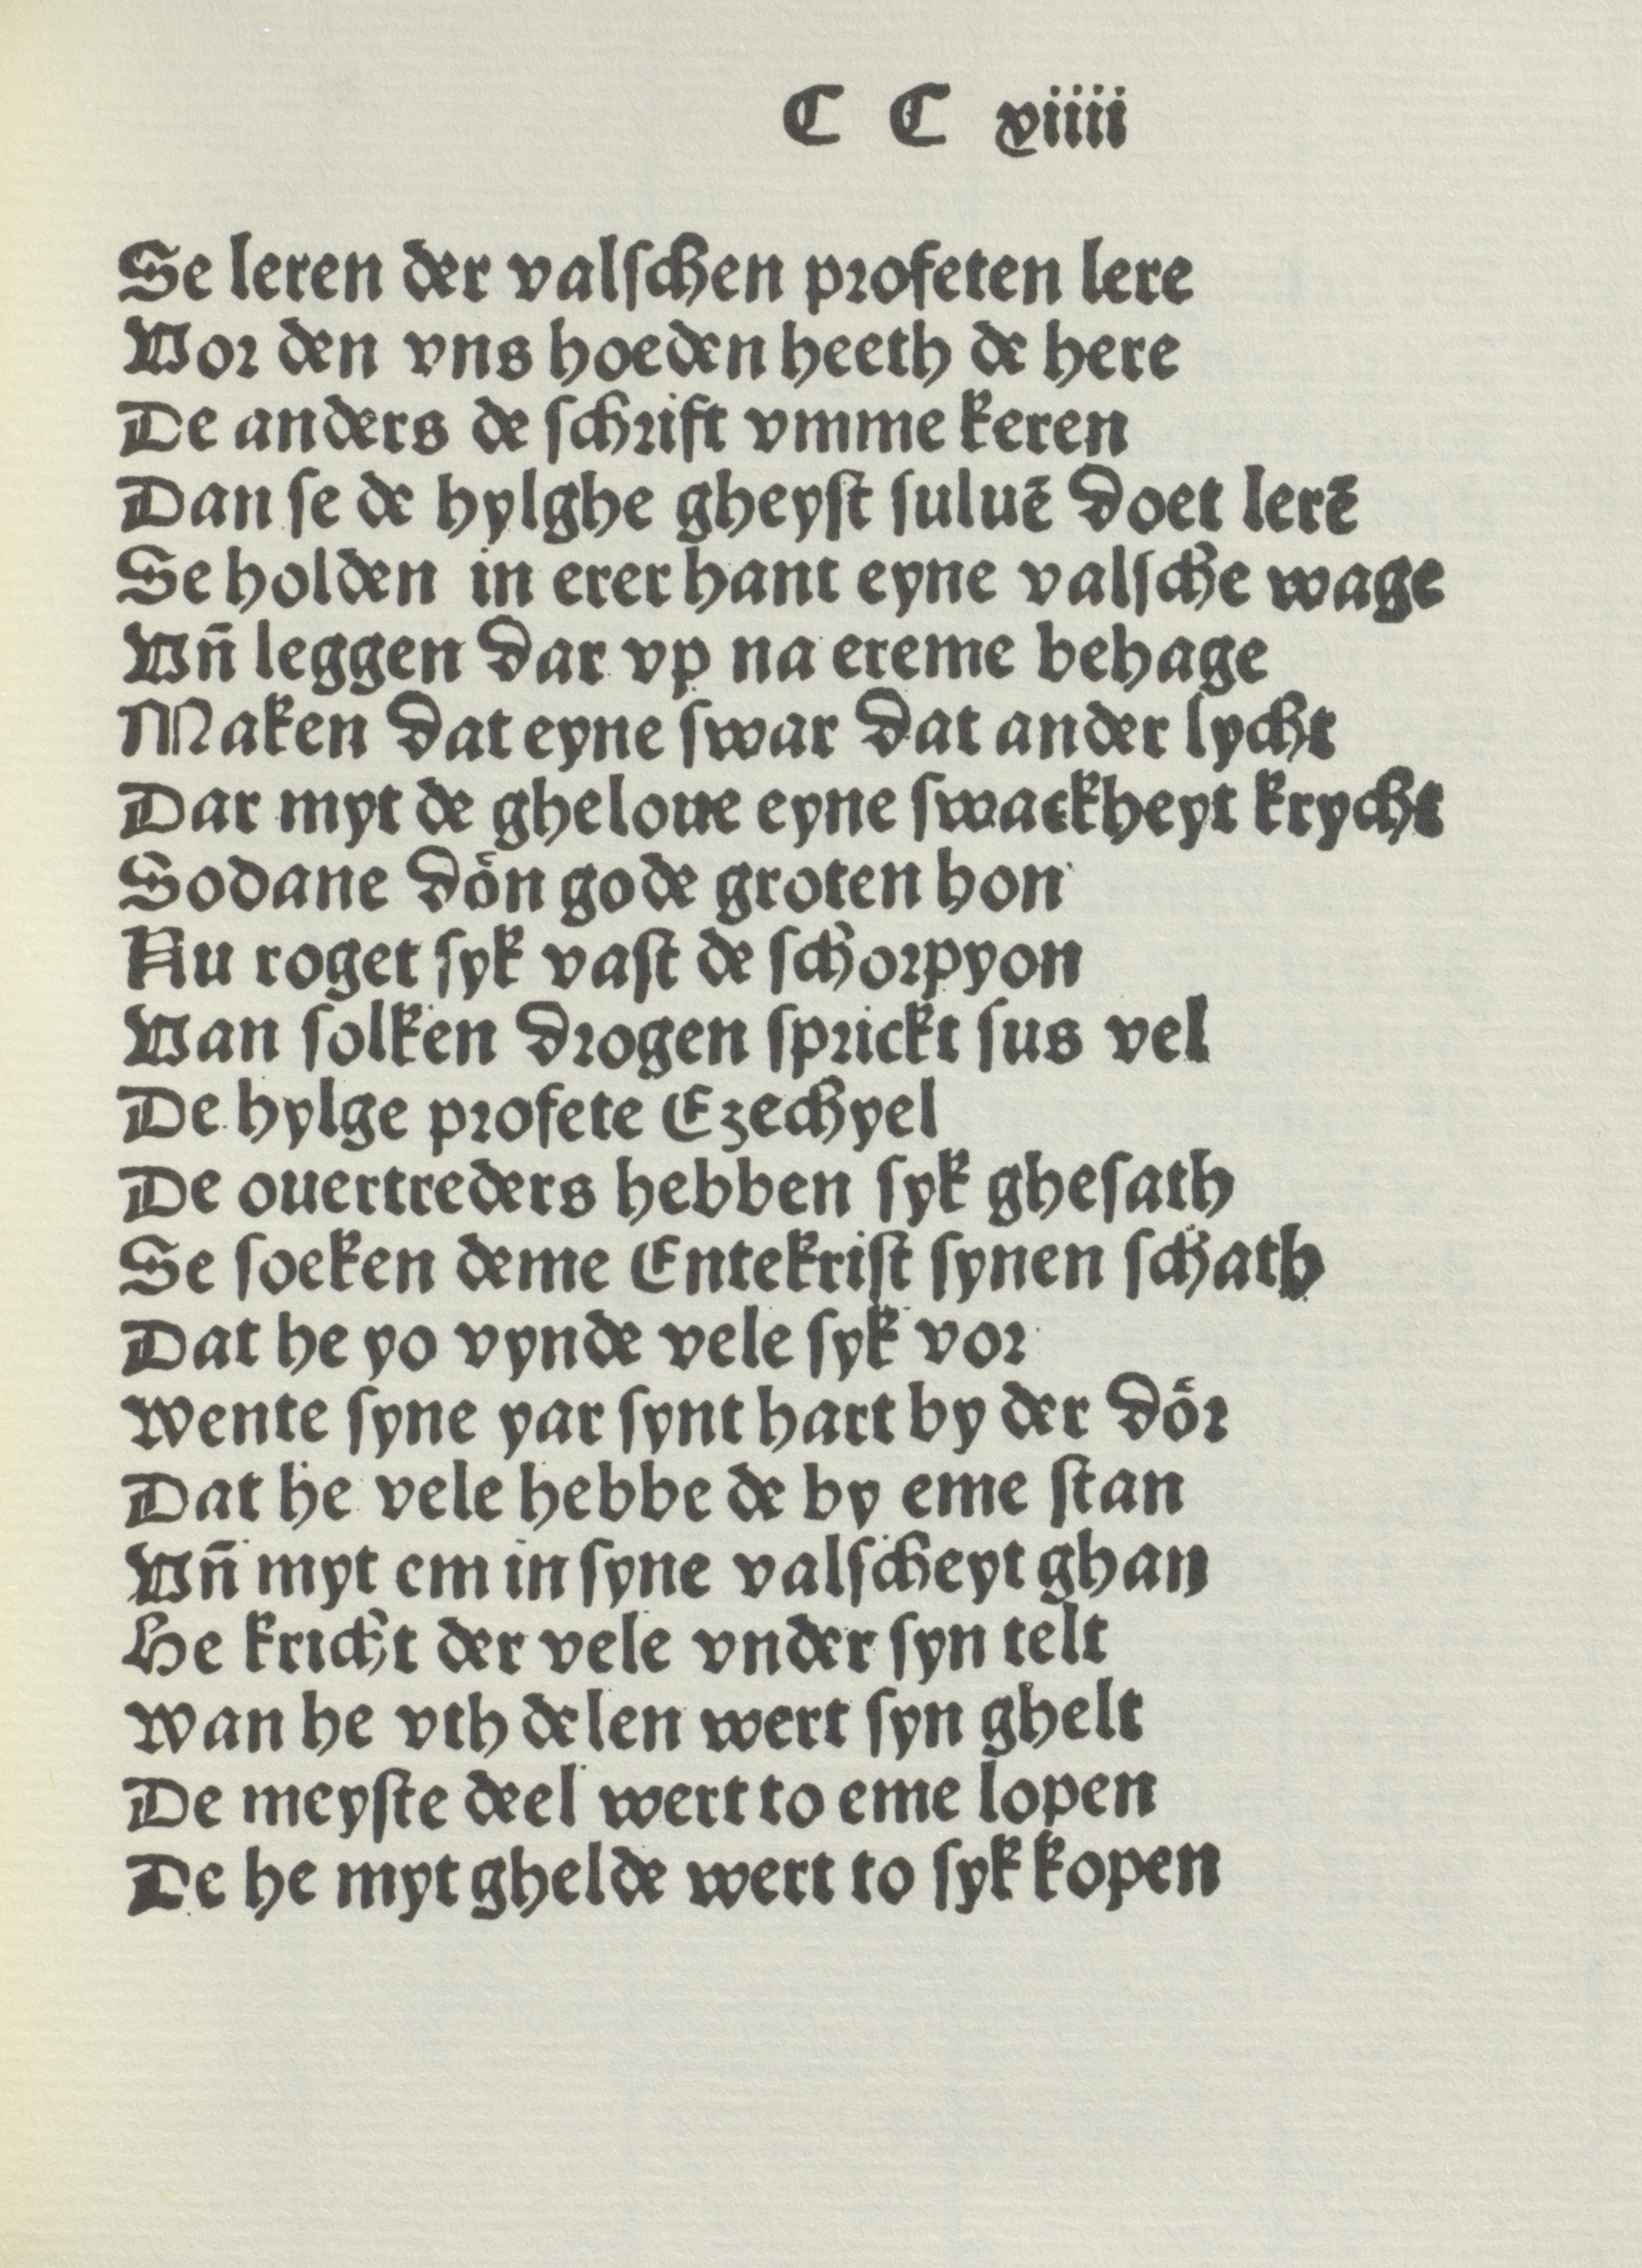 C C xiiii
Se leren der valſchen profeten lere
Vor den vns hoeden heeth de here
De anders de ſchrift vmme keren
Dan ſe de hylghe gheyſt ſuluē doet lerē
Se holden in erer hant eyne valſche wage
Vn̄ leggen dar vp na ereme behage
Maken dat eyne ſwar dat ander lycht
Dar myt de gheloue eyne ſwackheyt krycht
Sodane doͤn gode groten hon
Nu roget ſyk vaſt de ſchorpyon
Van ſolken drogen ſprickt ſus vel
De hylge profete Ezechyel
De ouertreders hebben ſyk gheſath
Se ſoeken deme Entekriſt ſynen ſchath
Dat he yo vynde vele ſyk vor
Wente ſyne yar ſynt hart by der doͤr
Dat he vele hebbe de by eme ſtan
Vn̄ myt em in ſyne valſcheyt ghan
He kricht der vele vnder ſyn telt
Wan he vth delen wert ſyn ghelt
De meyſte deel wert to eme lopen
De he myt ghelde wert to ſyk kopen